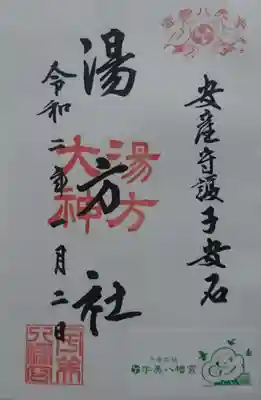 安産守護子安石
湯方社
湯方
大神
令和二年一月二日
宇美八幡宮